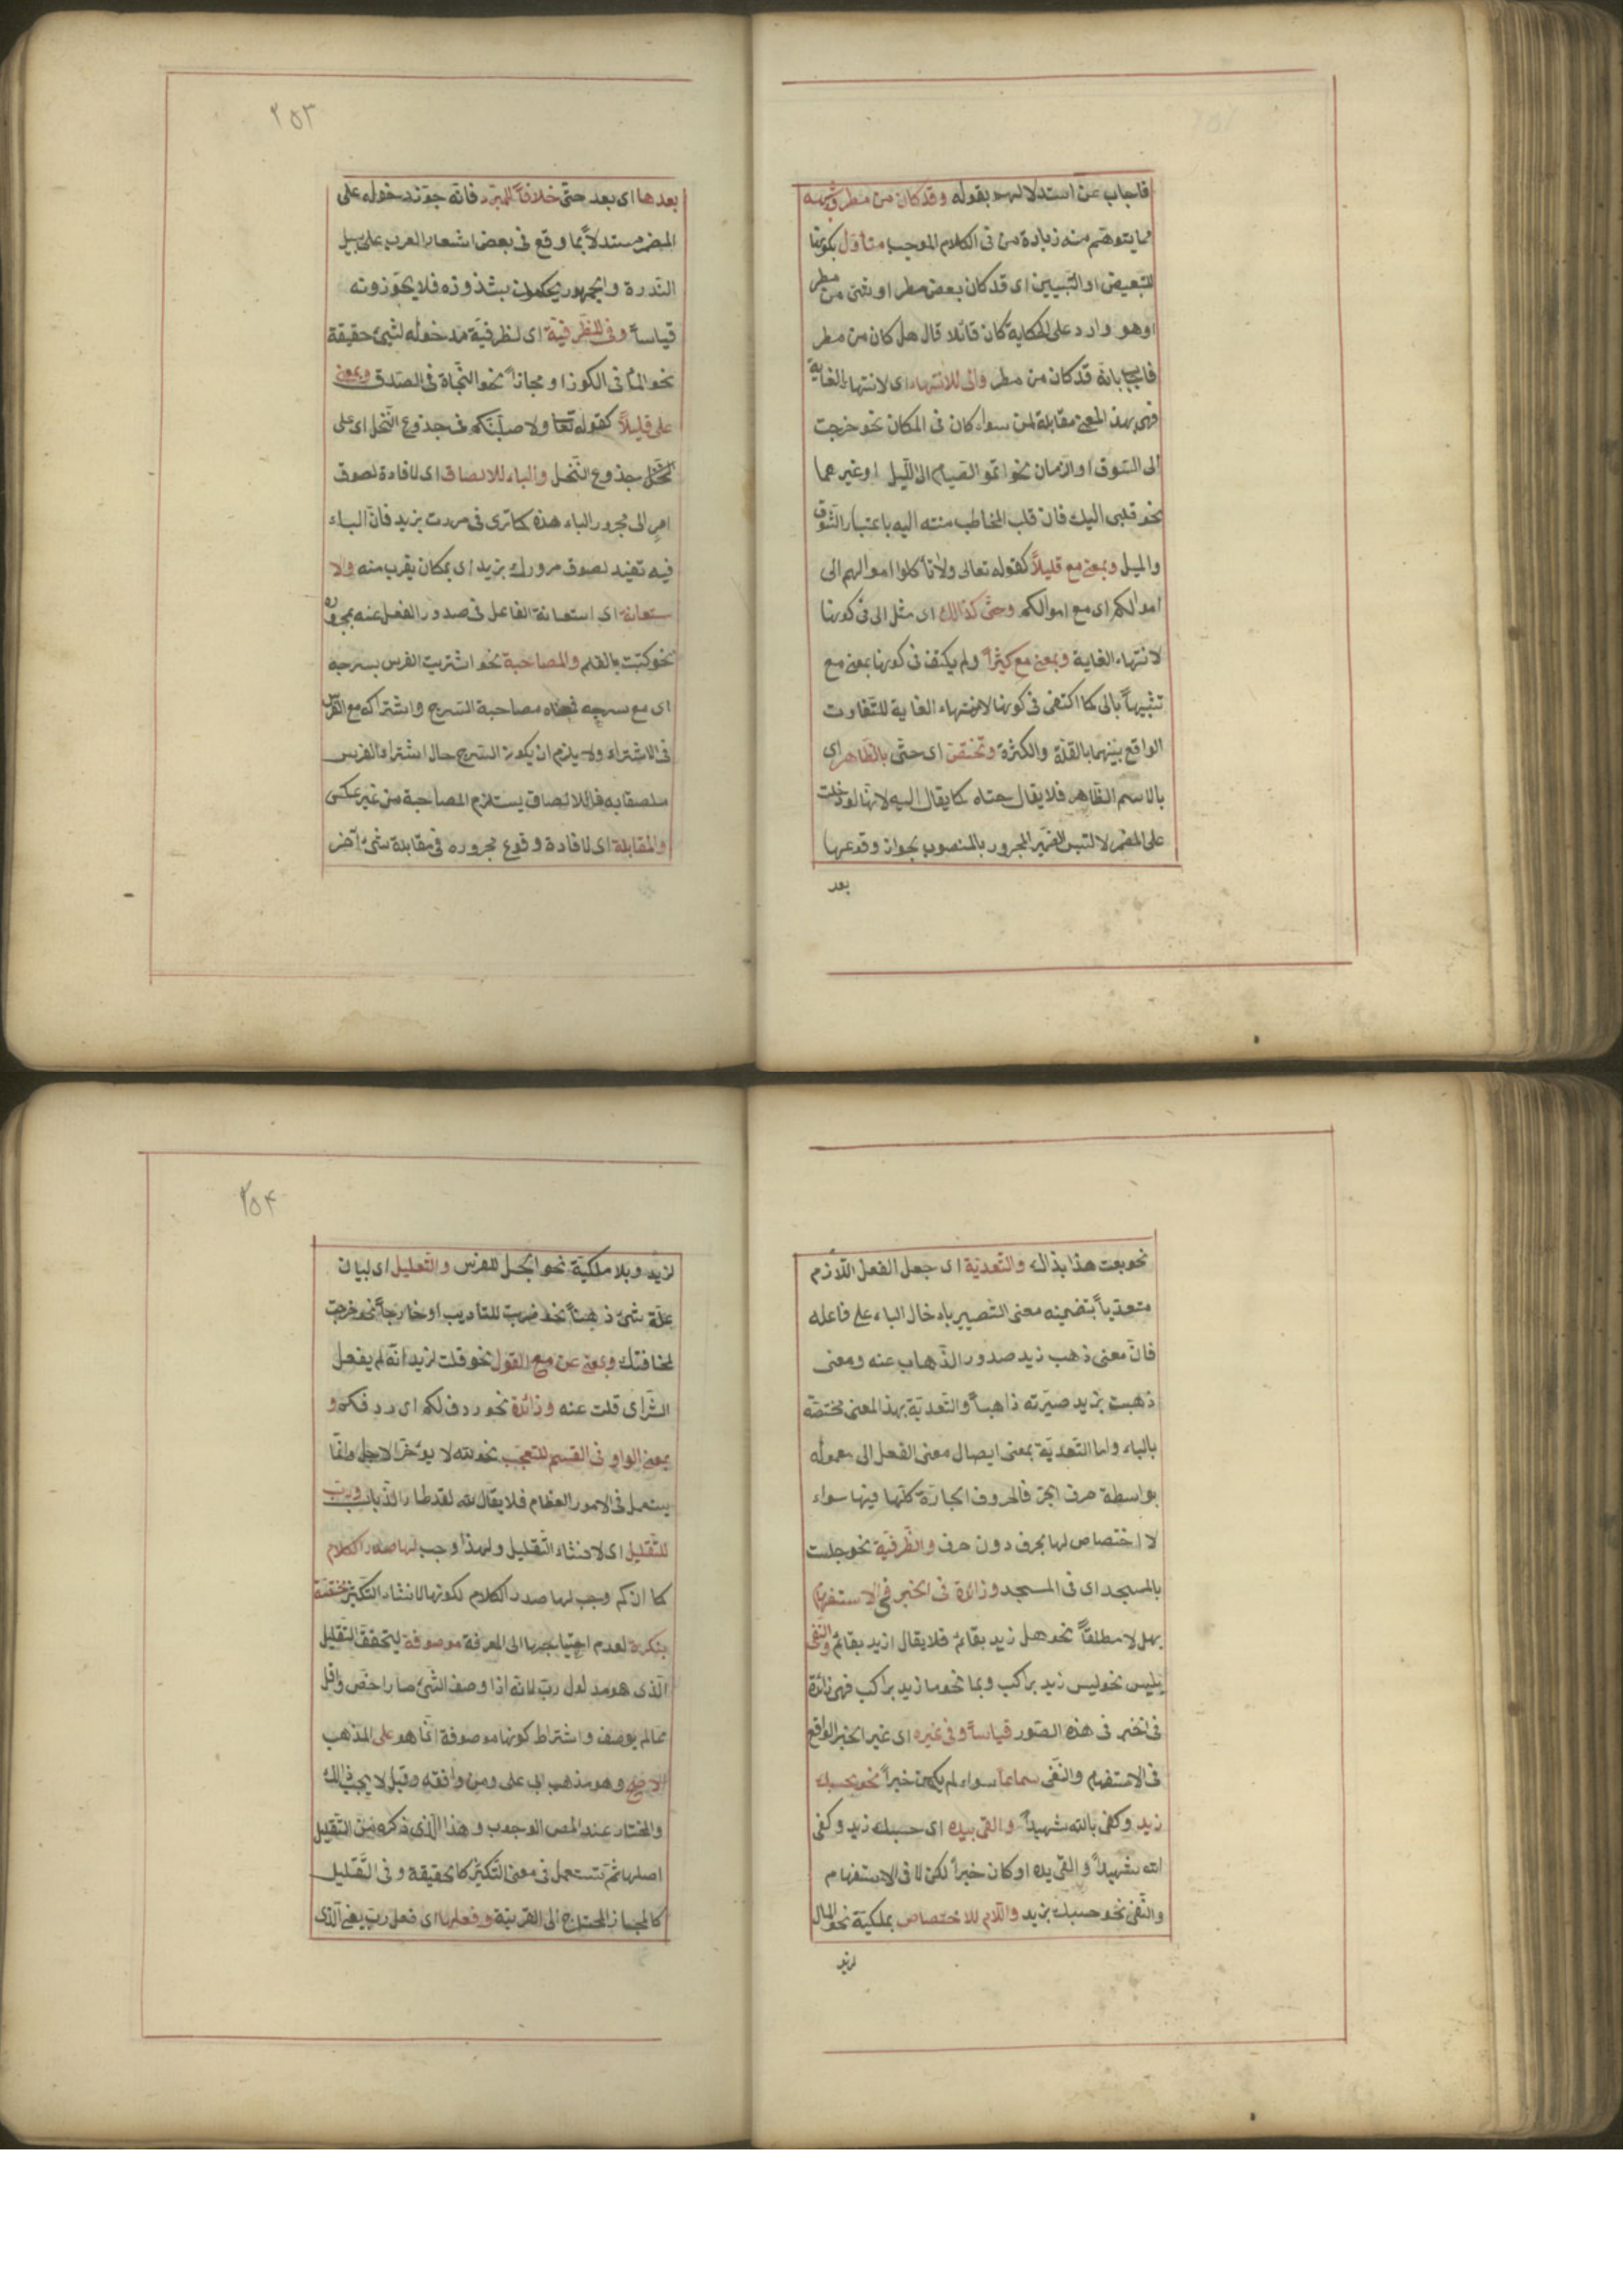 فاجاب عن استدلالهم بقوله وقد كان من مطر وشبهه
مما يتوهم منه زيادة من فى الكلام الموجب متأول بكونها
للتبعيض او التبيين اى قد كان بعض مطر او شئ من مطر
اوهو وارد على الحكاية كان قائلا قال هل كان من مطر
فاجاب بانه قد كان من مطر والى للانتهاء اى لانتهاء الغاية
فهى بهذا المعنى مقابلة لمن سواء كان فى المكان نحو خرجت
الى السّوق او الزمان نحو اتموا الصيام الى اللّيل او غيرهما
نحو قلبى اليك فان قلب المخاطب منته اليه باعتبار الشوق
والميل وبمعنى مع قليلاً كقوله تعالى ولا تأكلوا اموالهم الى
اموالكم اى مع اموالكم وحتّى كذالك اى مثل الى فى كونها
لانتهاء الغاية وبمعنى مع كثيراً ولم يكتف فى كونها بمعنى مع
تشبيهاً بالى كما اكتفى فى كونها لانتهاء الغاية للتّفاوت
الواقع بينهما بالقلة والكثرة وتختصّ اى حتّى بالظّاهر اى
بالاسم الظّاهر فلا يقال حتاه كما يقال اليه لانها لو دخلت
على المضمر لالتبس الضمير المجرور بالمنصوب بجواز وقوعها
بعد
٢٥٣
بعدها اى بعد حتّى خلافاً للمبرّد فانّه جوّز دخوله على
المضمر مستدلاً بما وقع فى بعض اشعار العرب على سبيل
النّدرة والجمهور يحكمون بشذوذه فلا يجوّزونه
قياساً وفى للظّرفيّة اى لظرفيّة مدخوله لشئ حقيقة
نحو الماء فى الكوز او مجازاً نحو النّجاة فى الصّدق وبمعنى
على قليلاً كقوله تعا ولاصلّبنّكم فى جذوع النّخل اى على
جذوع النّخل والباء للالصاق اى لافادة لصوق
امر الى مجرور الباء هذه كما ترى فى مررت بزيد فانّ الباء
فيه تفيد لصوق مرورك بزيد اى بمكان يقرب منه والا
ستعانة اى استعانة الفاعل فى صدور الفعل عنه بمجروره
نحو كتبت بالقلم والمصاحبة نحو اشتريت الفرس بسرجه
اى مع سرجه فمعناه مصاحبة السّرج واشتراكه مع الفرس
فى الاشتراء ولا يلزم ان يكون السّرج حال اشتراء الفرس
ملصقا به فالالصاق يستلزم المصاحبة من غير عكس
والمقابلة اى لافادة وقوع مجروره فى مقابلة شئ آخر
نحو بعت هذا بذاك والتّعدية اى جعل الفعل اللّازم
متعدّياً بتضمينه معنى التّصيير بادخال الباء على فاعله
فانّ معنى ذهب زيد صدور الذّهاب عنه ومعنى
ذهبت بزيد صيّرته ذاهباً والتّعدية بهذا المعنى مختصّة
بالباء واما التّعدية بمعنى ايصال معنى الفعل الى معموله
بواسطة حرف الجرّ فالحروف الجارّة كلّها فيها سواء
لا اختصاص لها بحرف دون حرف والظّرفية نحو جلست
بالمسجد اى فى المسجد وزائدة فى الخبر فى الاستفهام
بهل لا مطلقاً نحو هل زيد بقائم فلا يقال ازيد بقائم والنّفى
بليس نحو ليس زيد براكب وبما نحو ما زيد براكب فهى زائدة
فى الخبر فى هذه الصّور قياساً وفى غيره اى غير الخبر الواقع
فى الاستفهام والنّفى سماعاً سواء لم يكن خبراً نحو بحسبك
زيد وكفى بالله شهيداً والقى بيده اى حسبك زيد وكفى
الله شهيداً والقى يده او كان خبراً لكن لا فى الاستفهام
والنّفى نحو حسبك بزيد واللّام للاختصاص بملكيّة نحو المال
لزيد
٢٥۴
لزيد وبلا ملكيّة نحو الجلّ للفرس والتّعليل اى لبيان
علّة شئ ذهناً نحو ضربت للتاديب او خارجاً نحو خرجت
لمخافتك وبمعنى عن مع القول نحو قلت لزيد انّه لم يفعل
الشّر اى قلت عنه وزائدة نحو ردف لكم اى ردفكم و
بمعنى الواو فى القسم للتعجّب نحو لله لا يؤخّر الاجل وانّما
يستعمل فى الامور العظام فلا يقال لله لقد طار الذّباب وربّ
للتّقليل اى لانشاء التّقليل ولهذا وجب لها صدر الكلام
كما ان كم وجب لها صدر الكلام لكونها لانشاء التّكثير مختصّة
بنكرة لعدم احتياجها الى المعرفة موصوفة ليتحقّق التّقليل
الّذى هو مدلول ربّ لانه اذا وصف الشّئ صار اخصّ واقل
ممّا لم يوصف واشتراط كونها موصوفة انّما هو على المذهب
الاصح وهو مذهب ابى على ومن وافقه وقيل لا يجب ذالك
والمختار عند المص الوجوب وهذا الّذى ذكره من التّقليل
اصلها ثمّ تستعمل فى معنى التّكثير كالحقيقة وفى التّقليل
كالمجاز المحتاج الى القرينة وفعلها اى فعل ربّ يعنى الّذى